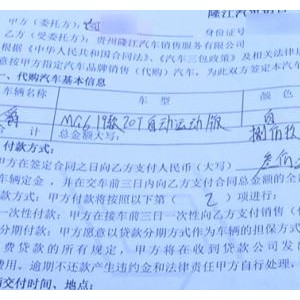 隆江汽车销售
甲方(委托方):
身份证号
乙方(受委托方):贵州隆江汽车销售服务有限公司
根据《中华人民共和国合同法》、《汽车三包政策》及相关法律
意接受甲方指定汽车品牌销售(代购)汽车,为此双方签定本汽车
一、代购汽车基本信息
车辆名称 车 型 颜 色
MG6 19款 20T自动运动版 白
合 计 总金额大写: 捌佰
付款方式:
甲方在签定合同之日向乙方支付人民币(大写) 叁佰
车辆定金,并在交车前三日内向乙方支付合同总金额的全
款方式:甲方付款将按照以下第( 2 )项进行:
一次性付款:甲方在接车前三日一次性向乙方支付销售(代
分期付款:甲方愿意以贷款分期方式作为车辆的担保方式
费贷款的所有规定,甲方将在收到贷款公司发
费用、逾期不还款产生违约金和法律责任甲方自行处理,
交付时间、地点: